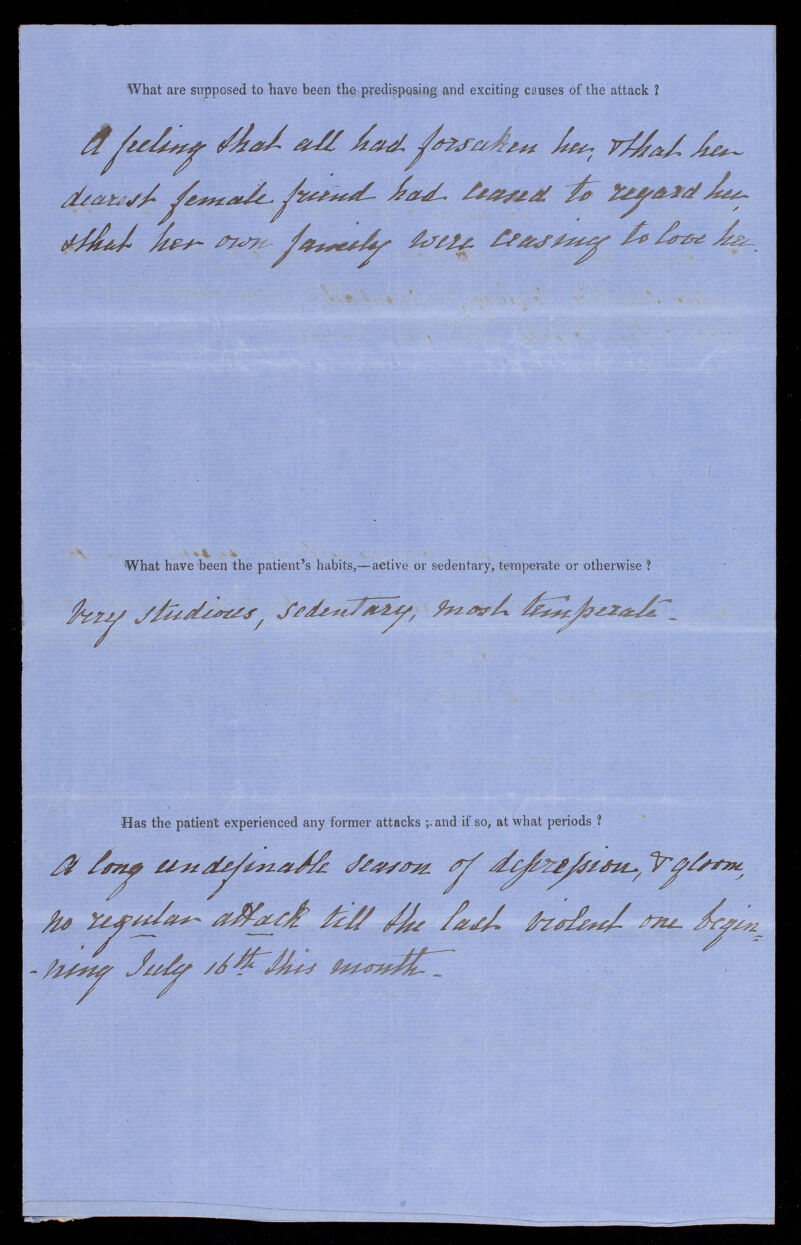 What are supposed to have been the predisposing and exciting causes of the attack ?
A feeling that all had forsaken her, & that her
dearest female friend had ceased to regard her,
& that her own family were ceasing to love her.
What have been the patient's habits,—active or sedentary, temperate or otherwise ?
Very studious, sedentary, most temperate -
Has the patient experienced any former attacks ; and if so, at what periods ?
A long undefinable season of depression, & gloom,
no regular attack till the last violent one begin=
-ning July 16th this month -